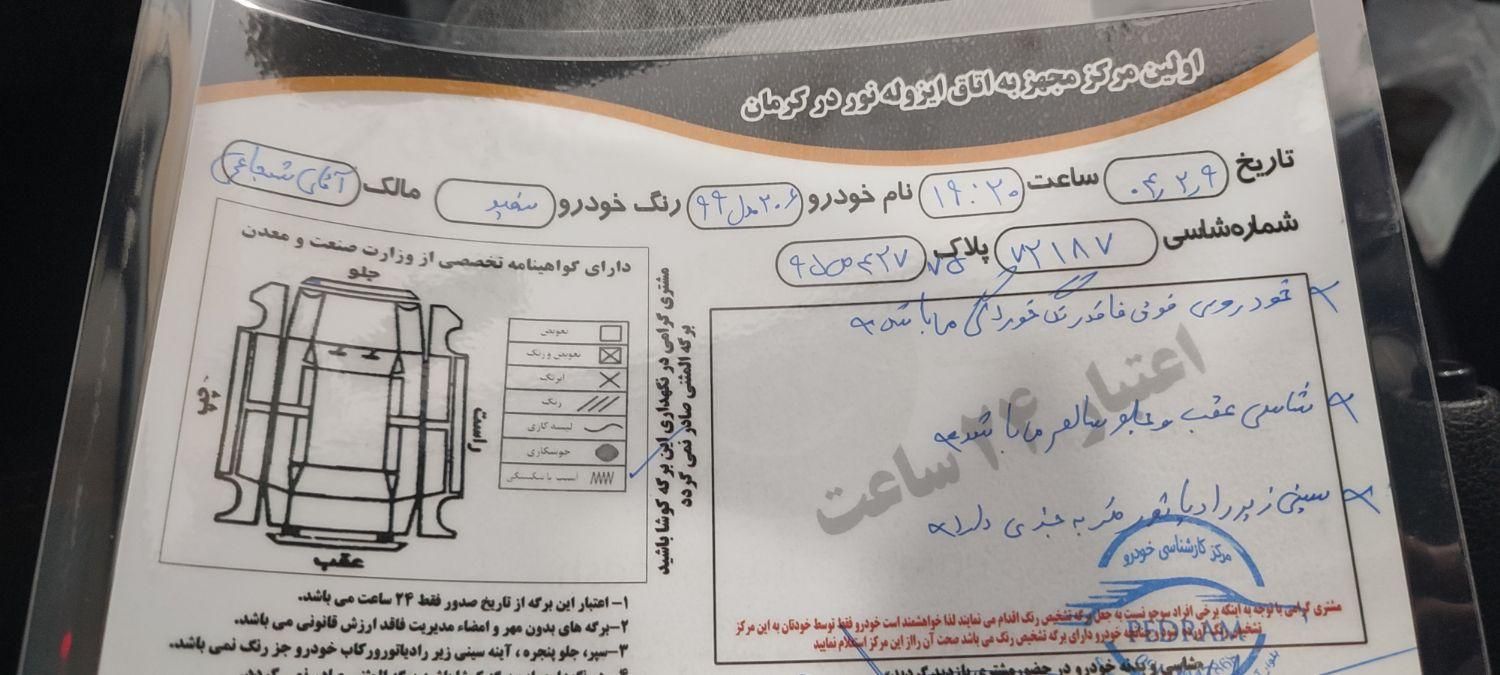 اولین مرکز مجهز به اتاق ایزوله نور در کرمان
تاریخ ۰۴٫۲٫۹ ساعت ۱۹:۲۰ نام خودرو ۲۰۶ مدل ۹۹ رنگ خودرو سفید مالک آقای شجاعی
شماره شاسی ۷۲۱۸۷ پلاک
خودروی فوق فاقد رنگ خوردگی می باشد
شاسی عقب و جلو سالم می باشد
سینی زیر رادیاتور ضربه جزئی دارد
اعتبار ۲۴ ساعت
مرکز کارشناسی خودرو
PEDRAM
مشتری گرامی با توجه به اینکه برخی افراد سودجو نسبت به جعل برگه تشخیص رنگ اقدام می نمایند لذا خواهشمند است خودرو فقط توسط خودتان به این مرکز
تشخیص رنگ آورده شود چنانچه خودرو دارای برگه تشخیص رنگ می باشد صحت آن را از این مرکز استعلام نمایید
شاسی و بدنه خودرو در حضور مشتری بازدید گردید
مشتری گرامی در نگهداری این برگه کوشا باشید
برگه المثنی صادر نمی گردد
دارای گواهینامه تخصصی از وزارت صنعت و معدن
جلو
چپ
راست
عقب
تعویض
تعویض و رنگ
ابرنگ
رنگ
لیسه کاری
جوشکاری
آسیب یا شکستگی
۱- اعتبار این برگه از تاریخ صدور فقط ۲۴ ساعت می باشد.
۲- برگه های بدون مهر و امضاء مدیریت فاقد ارزش قانونی می باشد.
۳- سپر، جلو پنجره ، آینه سینی زیر رادیاتور و رکاب خودرو جز رنگ نمی باشد.